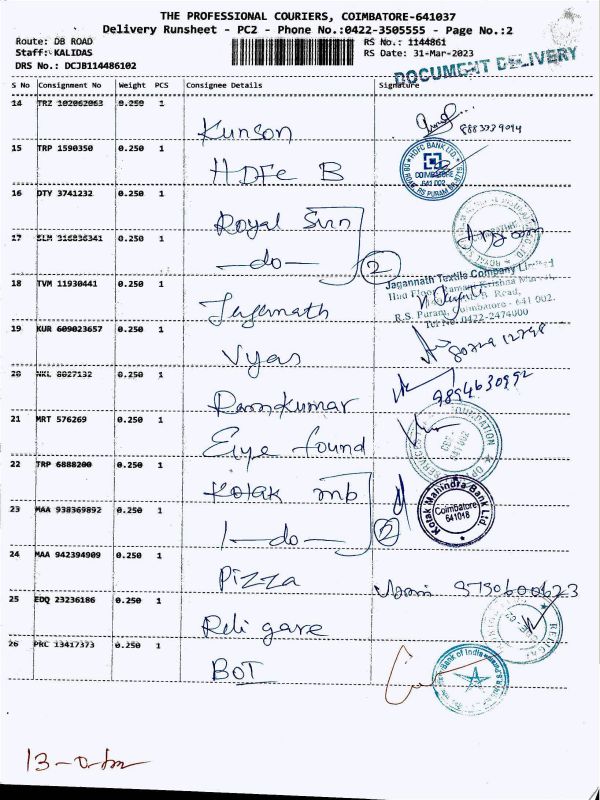 THE PROFESSIONAL COURIERS, COIMBATORE-641037
Delivery Runsheet - PC2 - Phone No.:0422-3505555 - Page No.:2
Route: DB ROAD
RS No.: 1144861
Staff: KALIDAS
RS Date: 31-Mar-2023
DRS No.: DCJB114486102
DOCUMENT DELIVERY
S No Consignment No Weight PCS Consignee Details Signature
14 TRZ 102062063 0.250 1 Kunson
15 TRP 1590350 0.250 1 HDFC B
HDFC BANK LTD. COIMBATORE 641 002
16 DTY 3741232 0.250 1 Royal Sun
17 SLM 316836341 0.250 1 —do— 2
18 TVM 11930441 0.250 1 Jagannath
Jagannath Textile Company Limited
R.S. Puram, Coimbatore - 641 002.
Tel No. 0422-2474000
19 KUR 609023657 0.250 1 Vyas
20 NKL 8027132 0.250 1 Ramkumar 9894630992
21 MRT 576269 0.250 1 Eiye found
FOUNDATION
22 TRP 6888200 0.250 1 Kotak mb
Kotak Mahindra Bank Ltd. Coimbatore 641018
23 MAA 938369892 0.250 1 —do— 2
24 MAA 942394909 0.250 1 Pizza
25 EDQ 23236186 0.250 1 Reli gare
26 PRC 13417373 0.250 1 BOI
Bank of India